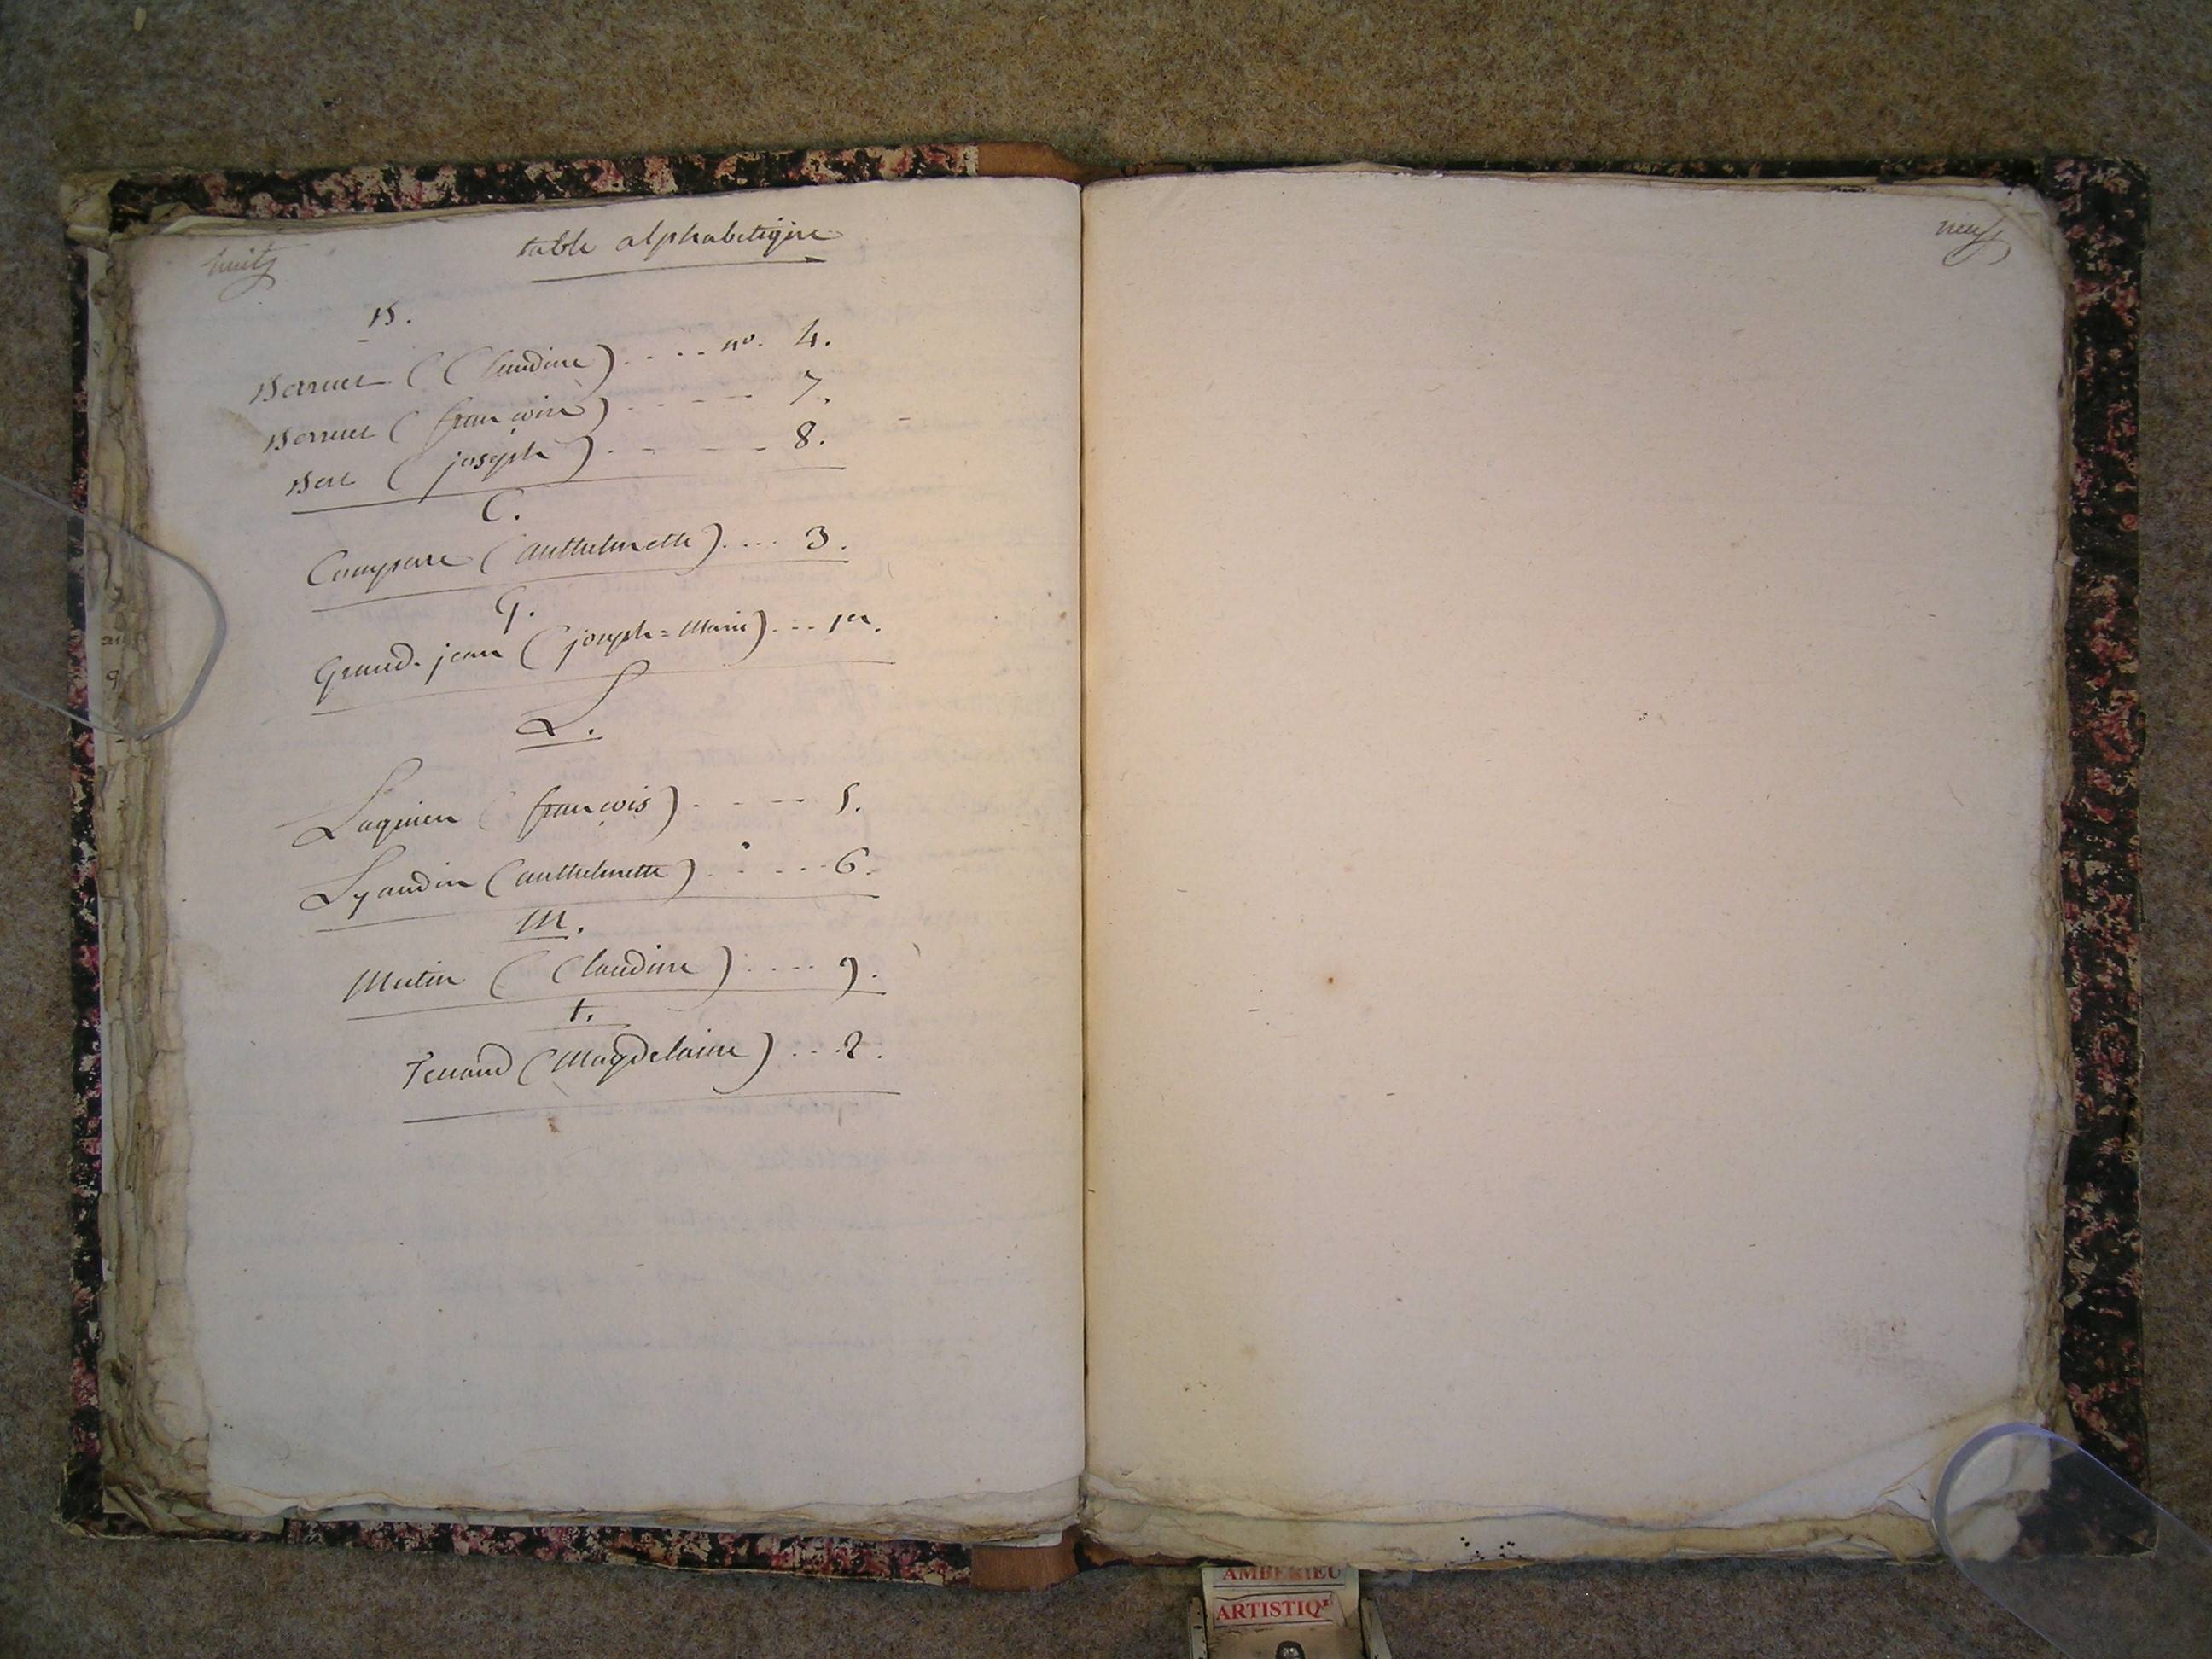 huit
table alphabetique
B.
Berruet (Claudine) .... no. 4.
Berruet (françoise) ..... 7.
Bert (joseph) ..... 8.
C.
Compare (anthelmette) .... 3.
G.
Grand-jean (joseph=Marie) ... 1er.
L.
Laguien (françois) .... 5.
Lyaudin (anthelmette) .... 6.
M.
Mutin (Claudine) .... 9.
t.
Tenand (Magdelaine) ... 2.
neuf
AMBERIEU
ARTISTIQ